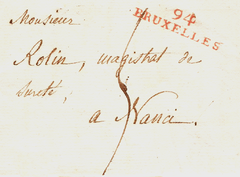 Monsieur
94
BRUXELLES
Rolin, magistrat de
sureté,
a Nanci.
5